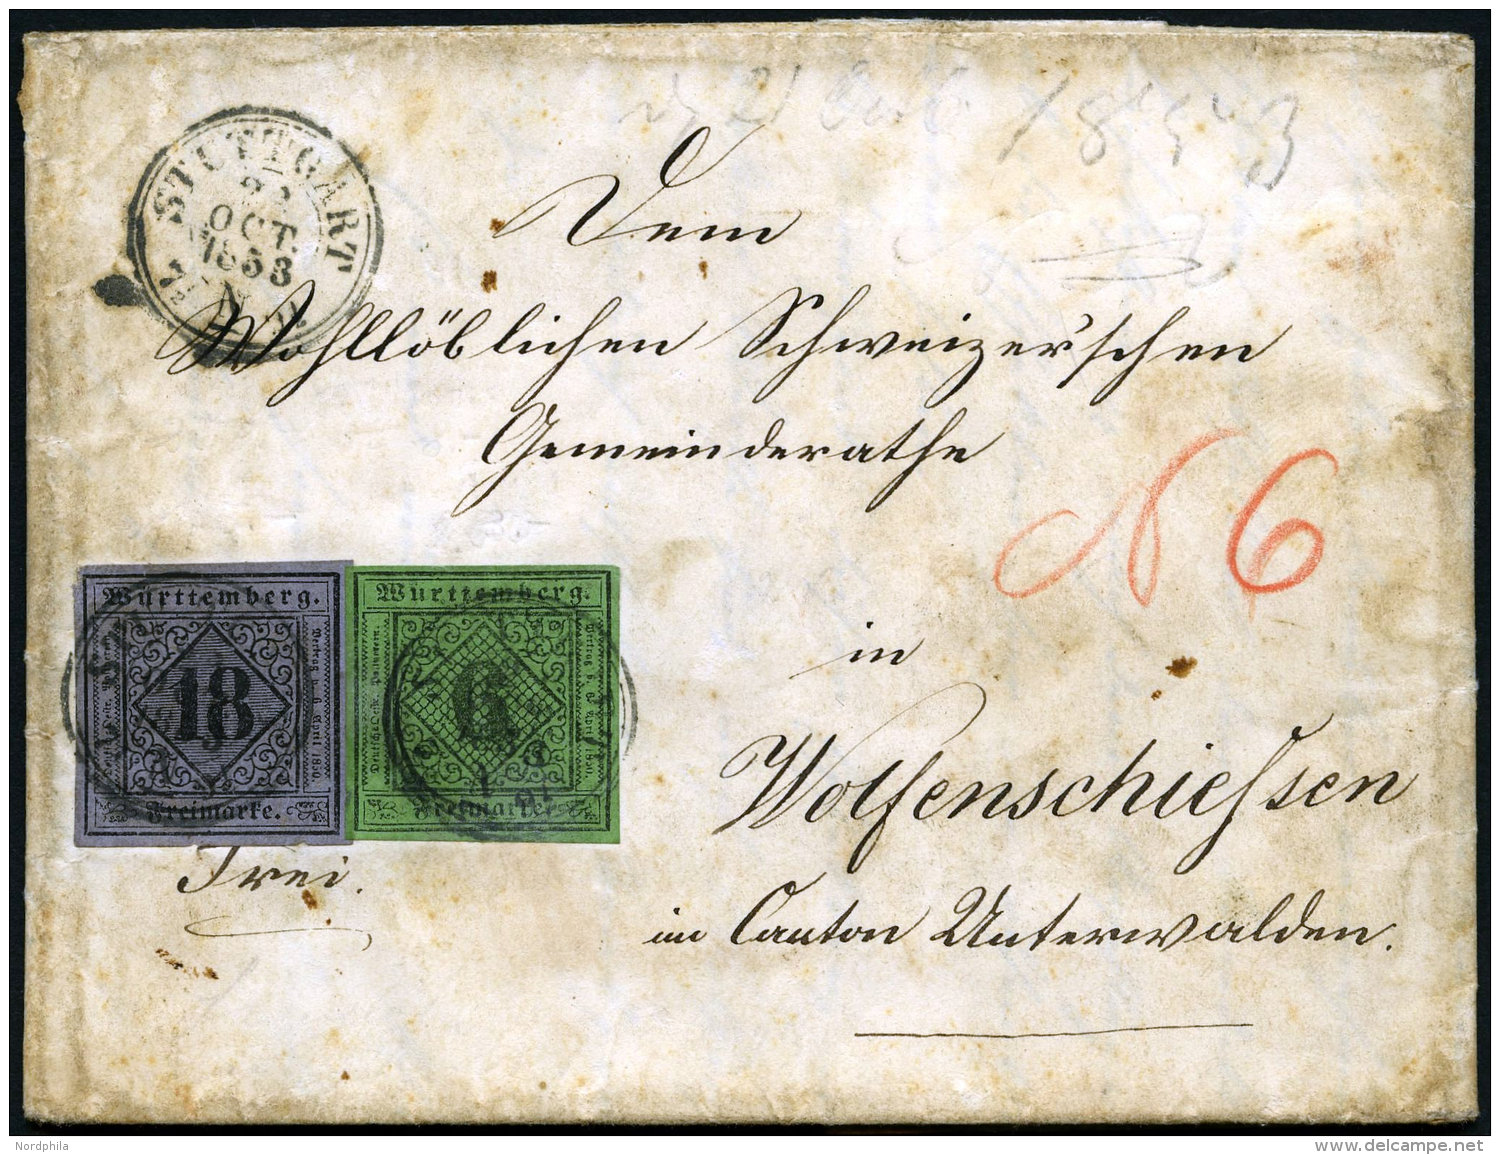 STUTTGART
OCT.
1853
Dem
Wohllöblichen Schweizer'schen
Gemeinderathe
N 6
Württemberg.
18
Freimarke.
Württemberg.
6
Freimarke.
Frei.
in
Wolfenschießen
im Canton Unterwalden.
Nordphila
www.delcampe.net